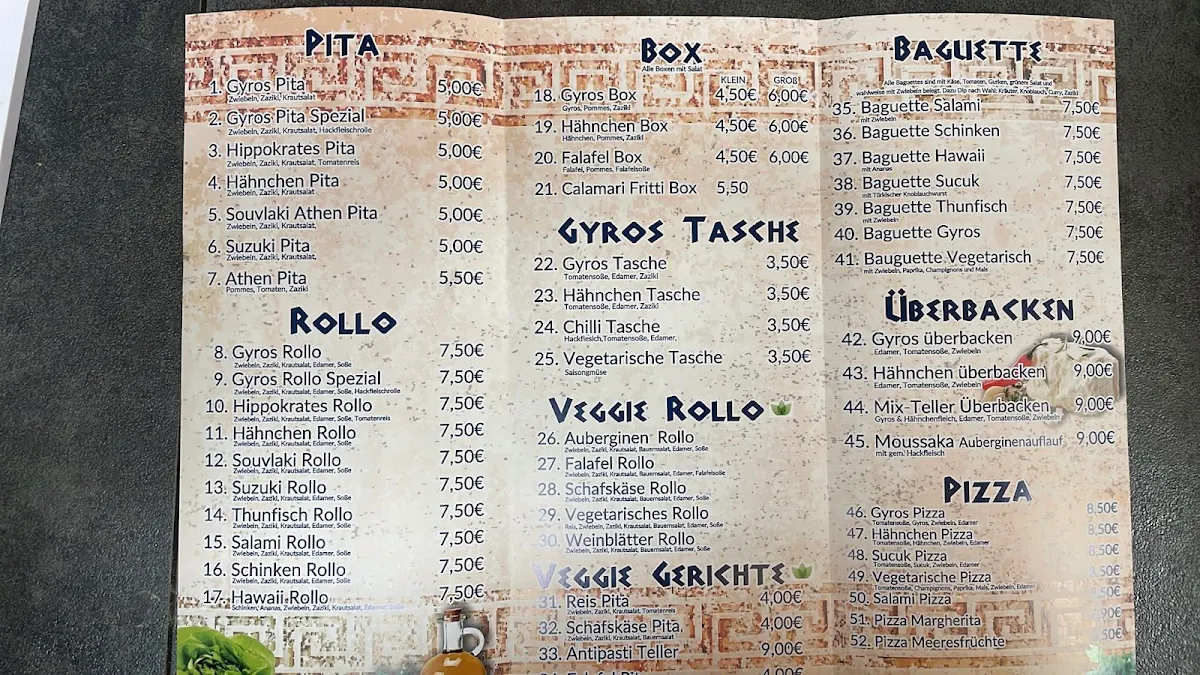 PITA
1. Gyros Pita 5,00€
Zwiebeln, Zaziki, Krautsalat
2. Gyros Pita Spezial 5,00€
Zwiebeln, Zaziki, Krautsalat, Hackfleischrolle
3. Hippokrates Pita 5,00€
Zwiebeln, Zaziki, Krautsalat, Tomatenreis
4. Hähnchen Pita 5,00€
Zwiebeln, Zaziki, Krautsalat
5. Souvlaki Athen Pita 5,00€
Zwiebeln, Zaziki, Krautsalat,
6. Suzuki Pita 5,00€
Zwiebeln, Zaziki, Krautsalat,
7. Athen Pita 5,50€
Pommes, Tomaten, Zaziki
ROLLO
8. Gyros Rollo 7,50€
Zwiebeln, Zaziki, Krautsalat, Edamer, Soße
9. Gyros Rollo Spezial 7,50€
Zwiebeln, Zaziki, Krautsalat, Edamer, Soße, Hackfleischrolle
10. Hippokrates Rollo 7,50€
Zwiebeln, Zaziki, Krautsalat, Edamer, Soße, Tomatenreis
11. Hähnchen Rollo 7,50€
Zwiebeln, Zaziki, Krautsalat, Edamer, Soße
12. Souvlaki Rollo 7,50€
Zwiebeln, Zaziki, Krautsalat, Edamer, Soße
13. Suzuki Rollo 7,50€
Zwiebeln, Zaziki, Krautsalat, Edamer, Soße
14. Thunfisch Rollo 7,50€
Zwiebeln, Zaziki, Krautsalat, Edamer, Soße
15. Salami Rollo 7,50€
Zwiebeln, Zaziki, Krautsalat, Edamer, Soße
16. Schinken Rollo 7,50€
Zwiebeln, Zaziki, Krautsalat, Edamer, Soße
17. Hawaii Rollo 7,50€
Schinken, Ananas, Zwiebeln, Zaziki, Krautsalat, Edamer,
BOX
Alle Boxen mit Salat
KLEIN GROß
18. Gyros Box 4,50€ 6,00€
Gyros, Pommes, Zaziki
19. Hähnchen Box 4,50€ 6,00€
Hähnchen, Pommes, Zaziki
20. Falafel Box 4,50€ 6,00€
Falafel, Pommes, Falafelsoße
21. Calamari Fritti Box 5,50
GYROS TASCHE
22. Gyros Tasche 3,50€
Tomatensoße, Edamer, Zaziki
23. Hähnchen Tasche 3,50€
Tomatensoße, Edamer, Zaziki
24. Chilli Tasche 3,50€
Hackfleisch,Tomatensoße, Edamer,
25. Vegetarische Tasche 3,50€
Saisongmüse
VEGGIE ROLLO
26. Auberginen Rollo
Zwiebeln, Zaziki, Krautsalat, Bauernsalat, Edamer, Soße
27. Falafel Rollo
Zwiebeln, Zaziki, Krautsalat, Bauernsalat, Edamer, Falafelsoße
28. Schafskäse Rollo
Zwiebeln, Zaziki, Krautsalat, Bauernsalat, Edamer, Soße
29. Vegetarisches Rollo
Reis, Zwiebeln, Zaziki, Krautsalat, Bauernsalat, Edamer, Soße
30. Weinblätter Rollo
Zwiebeln, Zaziki, Krautsalat, Bauernsalat, Edamer, Soße
VEGGIE GERICHTE
31. Reis Pita 4,00€
Zwiebeln, Zaziki, Krautsalat, Tomatenreis
32. Schafskäse Pita 4,00€
Zwiebeln, Zaziki, Krautsalat, Bauernsalat
33. Antipasti Teller 9,00€
BAGUETTE
Alle Baguettes sind mit Käse, Tomaten, Gurken, grünem Salat und
wahlweise mit Zwiebeln belegt. Dazu Dip nach Wahl: Kräuter, Knoblauch, Curry, Zaziki
35. Baguette Salami 7,50€
mit Zwiebeln
36. Baguette Schinken 7,50€
37. Baguette Hawaii 7,50€
mit Ananas
38. Baguette Sucuk 7,50€
mit Türkischer Knoblauchwurst
39. Baguette Thunfisch 7,50€
mit Zwiebeln
40. Baguette Gyros 7,50€
41. Bauguette Vegetarisch 7,50€
mit Zwiebeln, Paprika, Champignons und Mais
ÜBERBACKEN
42. Gyros überbacken 9,00€
Edamer, Tomatensoße, Zwiebeln
43. Hähnchen überbacken 9,00€
Edamer, Tomatensoße, Zwiebeln
44. Mix-Teller Überbacken 9,00€
Gyros & Hähnchenfleich, Edamer, Tomatensoße, Zwiebeln
45. Moussaka Auberginenauflauf 9,00€
mit gem. Hackfleisch
PIZZA
46. Gyros Pizza 8,50€
Tomatensoße, Gyros, Zwiebeln, Edamer
47. Hähnchen Pizza 8,50€
Tomatensoße, Hähnchen, Zwiebeln, Edamer
48. Sucuk Pizza 8,50€
Tomatensoße, Sucuk, Zwiebeln, Edamer
49. Vegetarische Pizza 8,50€
Tomatensoße, Champignons, Paprika, Mais, Zwiebeln, Edamer
50. Salami Pizza
51. Pizza Margherita
52. Pizza Meeresfrüchte